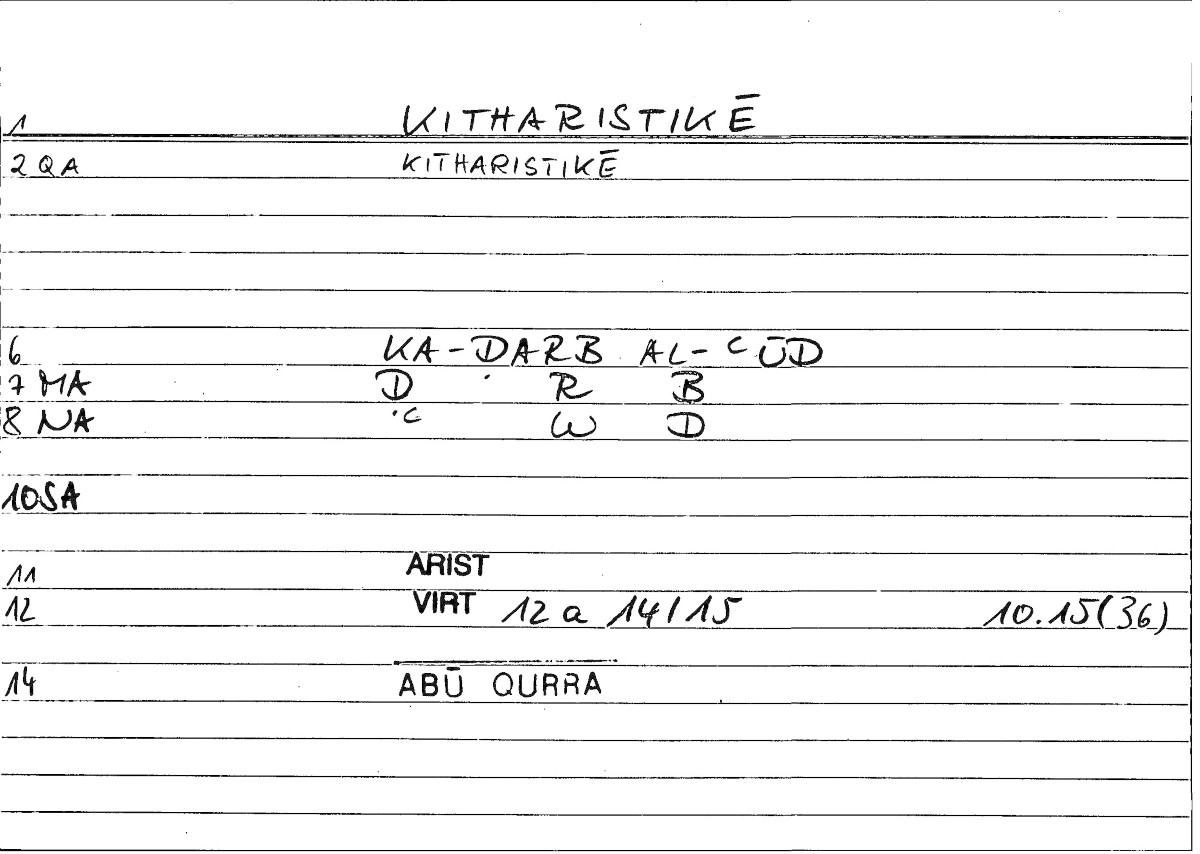 1 KITHARISTIKĒ
2 QA KITHARISTIKĒ
6 KA-ḌARB AL-ʿŪD
7 MA Ḍ R B
8 NA ʿ W D
10 SA
11 ARIST
12 VIRT 12 a 14/15 10.15(36)
14 ABŪ QURRA